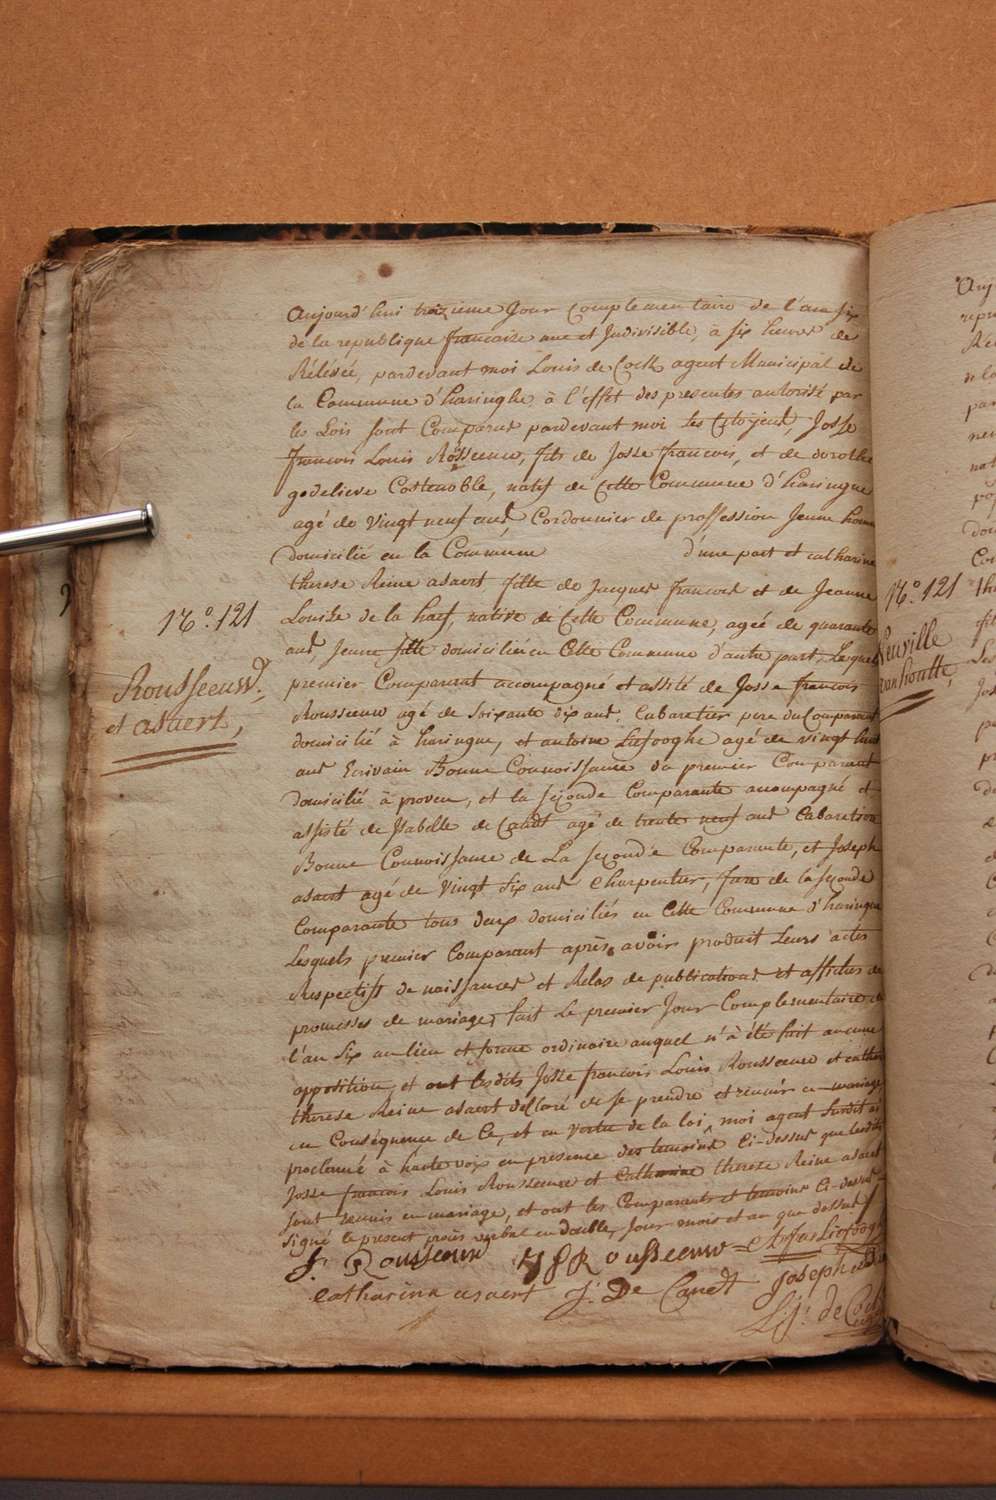 N.º 121
Rousseeuw.
et asaert,
Aujourd'hui troizieme Jour Complementaire de l'an six
de la republique francaise une et Indivisible, a six heures de
Rélévée, pardevant moi Louis de Cock agent Municipal de
la Commune d'haringhe à l'effet des presentes autorisé par
les Lois sont Comparus pardevant moi les Citoyens, Josse
francois Louis Rousseeuw, fils de Josse francois, et de dorothe
godelieve Costenoble, natif de Cette Commune d'haringue
agé de vingt neuf ans, Cordonnier de proffession Jeune homme
domicilié en la Commune d'une part et catharine
therese Reine asaert fille de Jacques francois et de Jeanne
Louise de la haef native de Cette Commune, ageé de quarante
ans, Jeune fille domiciliéen Cette Commune d'autre part, Lequel
premier Comparant accompagné et assité de Josse francois
Rousseeuw agé de Soixante dix ans. Cabaretier pere du Comparant
domicilié à haringue, et antoine Liefooghe agé de vingt huit
ans Ecrivain Bonne Connoissance du premier Comparant
domicilié à proven, et la seçonde Comparante accompagné et
assisté de Isabelle de Candt agé de trente neuf ans Cabaretier
Bonne Connoissance de La seçonde Comparante, et Joseph
asaert agé de vingt six ans Charpentier, de la seçonde
Comparante tous deux domiciliés en Cette Commune d'haringue
Lesquels premier Comparant après avoir produit Leurs actes
Respectifs de naissances et Relas de publications et affiches de
promesses de mariage, fait Le premier Jour Complementaire de
l'an Six au lieu et forme ordinaire auquel n'à été fait aucune
opposition, et ont lesdits Josse francois Louis Rousseeuw et cathar
therese Reine asaert declaré de se prendre et reunir en mariage
en Conséquence de Ce, et en vertu de la loi, moi agent Susdit ai
proclamé à haute voix en presence des temoins Ci-dessus que lesdits
Josse francois Louis Rousseeuw et Catharine therese Reine asaert
sont reunis en mariage, et ont les Comparants et temoins Ci-dessus
signé le present procès verbal en double, Jour mois et an que dessus
J: Rousseeuw JfRousseeuw Liefoogh
catharina asaert J: De Candt Joseph
L: J: de Cock
N.º 121
Neuville
vanhoutte